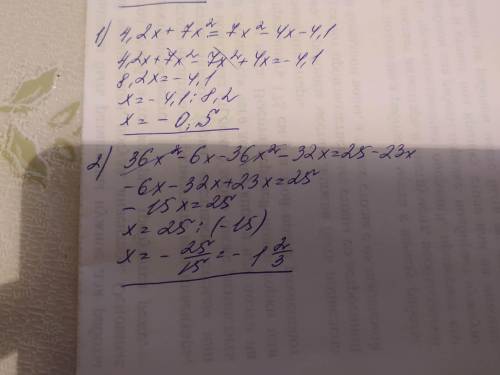 1) 4,2x + 7x² = 7x² - 4x - 4,1
4,2x + 7x² - 7x² + 4x = -4,1
8,2x = -4,1
x = -4,1 : 8,2
x = -0,5
2) 36x² - 6x - 36x² - 32x = 25 - 23x
-6x - 32x + 23x = 25
-15x = 25
x = 25 : (-15)
x = - 25/15 = -1 2/3